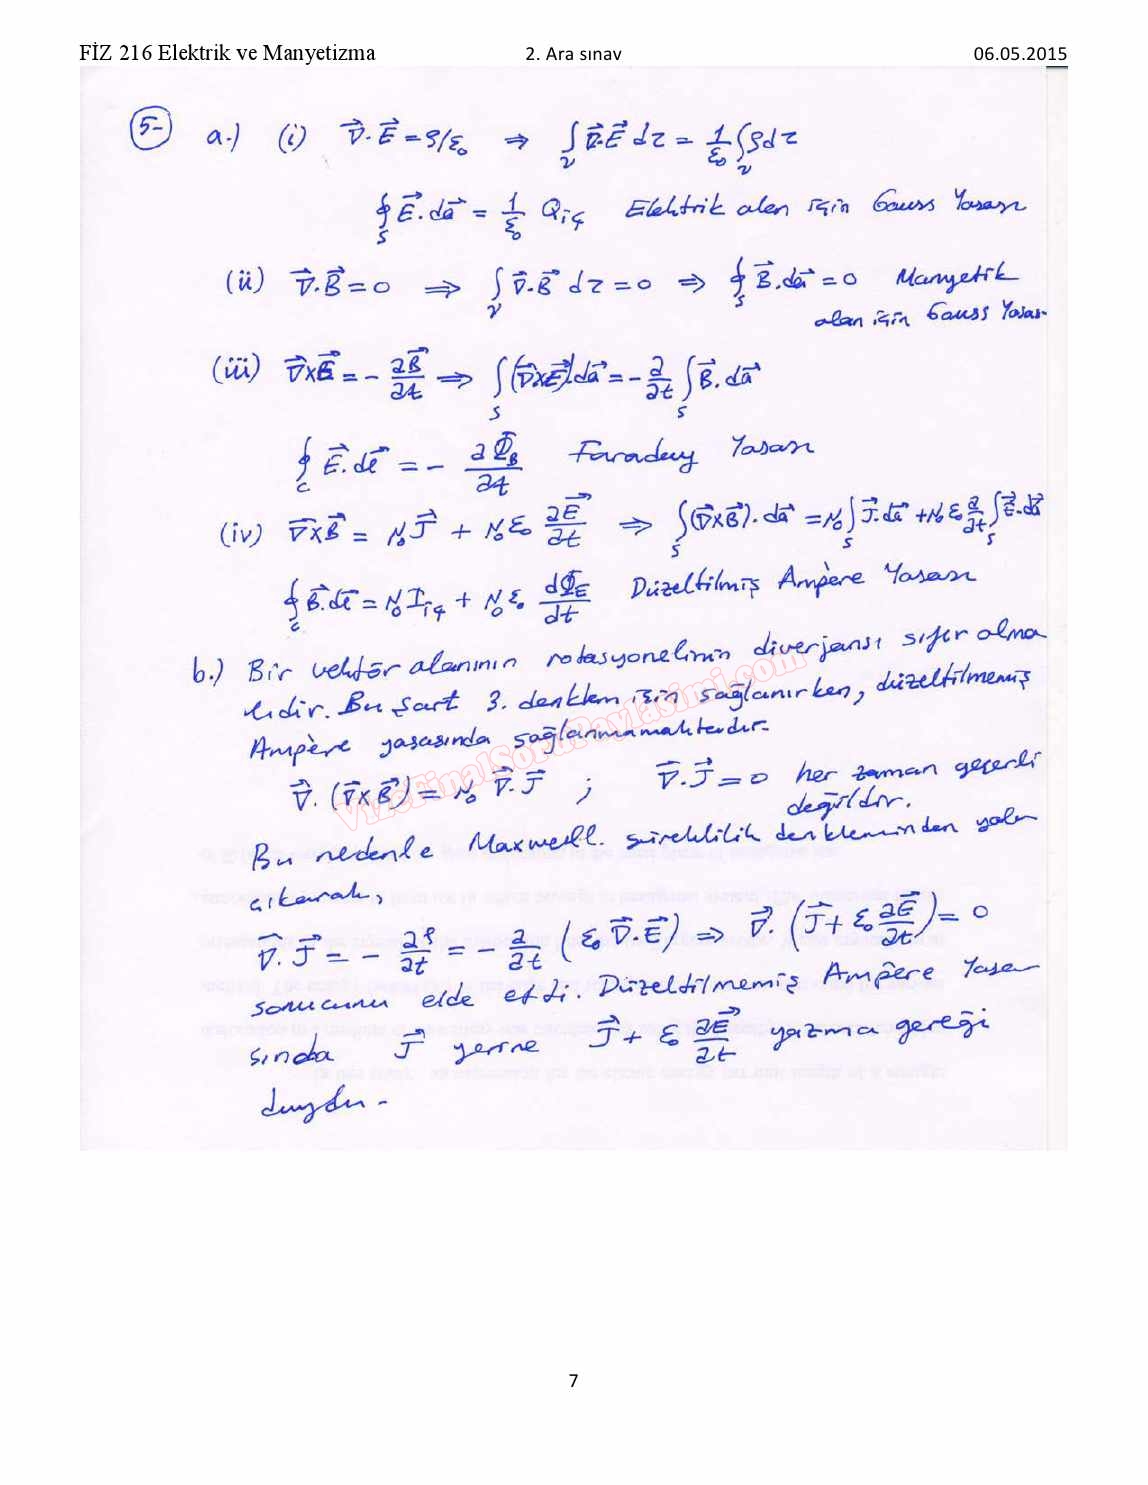 FİZ 216 Elektrik ve Manyetizma 2. Ara sınav 06.05.2015
5-) a.) (i) ∇⃗·E⃗ = ρ/ε₀ ⇒ ∫_V ∇⃗·E⃗ dτ = 1/ε₀ ∫_V ρdτ
∮_S E⃗·da⃗ = 1/ε₀ Q_iç Elektrik alan için Gauss Yasası
(ii) ∇⃗·B⃗ = 0 ⇒ ∫_V ∇⃗·B⃗ dτ = 0 ⇒ ∮_S B⃗·da⃗ = 0 Manyetik
alan için Gauss Yasası
(iii) ∇⃗×E⃗ = - ∂B⃗/∂t ⇒ ∫_S (∇⃗×E⃗)·da⃗ = - ∂/∂t ∫_S B⃗·da⃗
∮_C E⃗·dℓ⃗ = - ∂Φ_B/∂t Faraday Yasası
(iv) ∇⃗×B⃗ = μ₀J⃗ + μ₀ε₀ ∂E⃗/∂t ⇒ ∫_S (∇⃗×B⃗)·da⃗ = μ₀∫_S J⃗·da⃗ + μ₀ε₀ ∂/∂t ∫_S E⃗·da⃗
∮_C B⃗·dℓ⃗ = μ₀I_iç + μ₀ε₀ dΦ_E/dt Düzeltilmiş Ampère Yasası
b.) Bir vektör alanının rotasyonelinin diverjansı sıfır olma
lıdır. Bu şart 3. denklem için sağlanırken, düzeltilmemiş
Ampère yasasında sağlanmamaktadır.
∇⃗·(∇⃗×B⃗) = μ₀ ∇⃗·J⃗ ; ∇⃗·J⃗ = 0 her zaman geçerli
değildir.
Bu nedenle Maxwell. süreklilik denkleminden yola
çıkarak,
∇⃗·J⃗ = - ∂ρ/∂t = - ∂/∂t (ε₀ ∇⃗·E⃗) ⇒ ∇⃗·(J⃗ + ε₀ ∂E⃗/∂t) = 0
sonucunu elde etti. Düzeltilmemiş Ampère Yasa
sında J⃗ yerine J⃗ + ε₀ ∂E⃗/∂t yazma gereği
duydu.
VizeFinalSoruPaylasimi.com
7